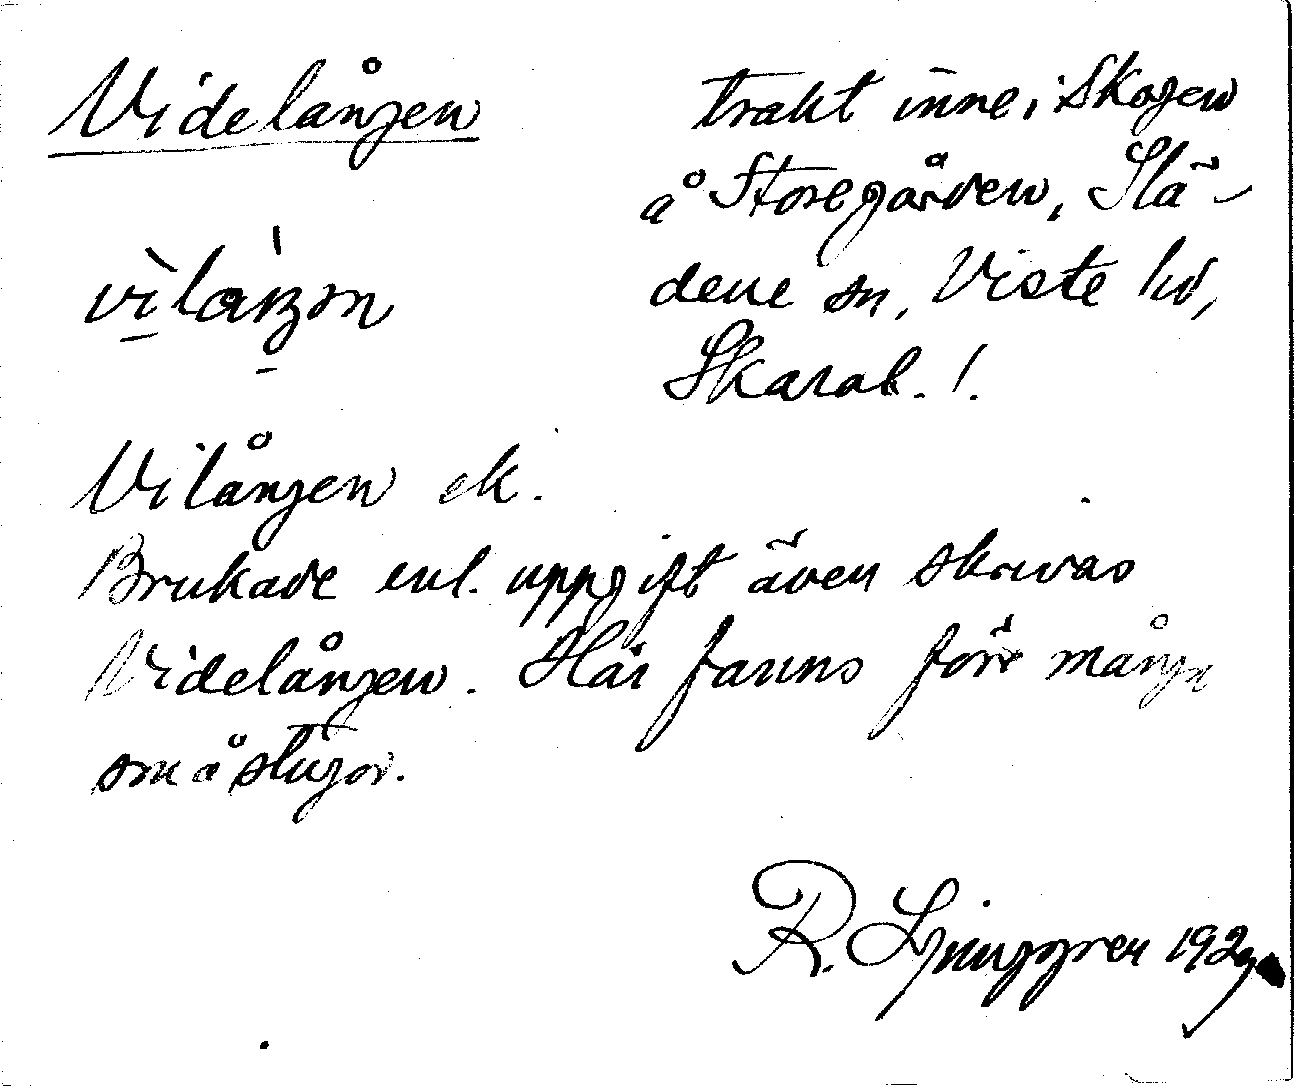 Videlången
trakt inne i Skogen
å Storegården, Slä-
dene sn, Viste hd,
Skarab. !.
Vilången ek.
Brukade enl. uppgift även skrivas
Videlången. Här fanns förr många
småstugor.
R. Ljunggren 1929